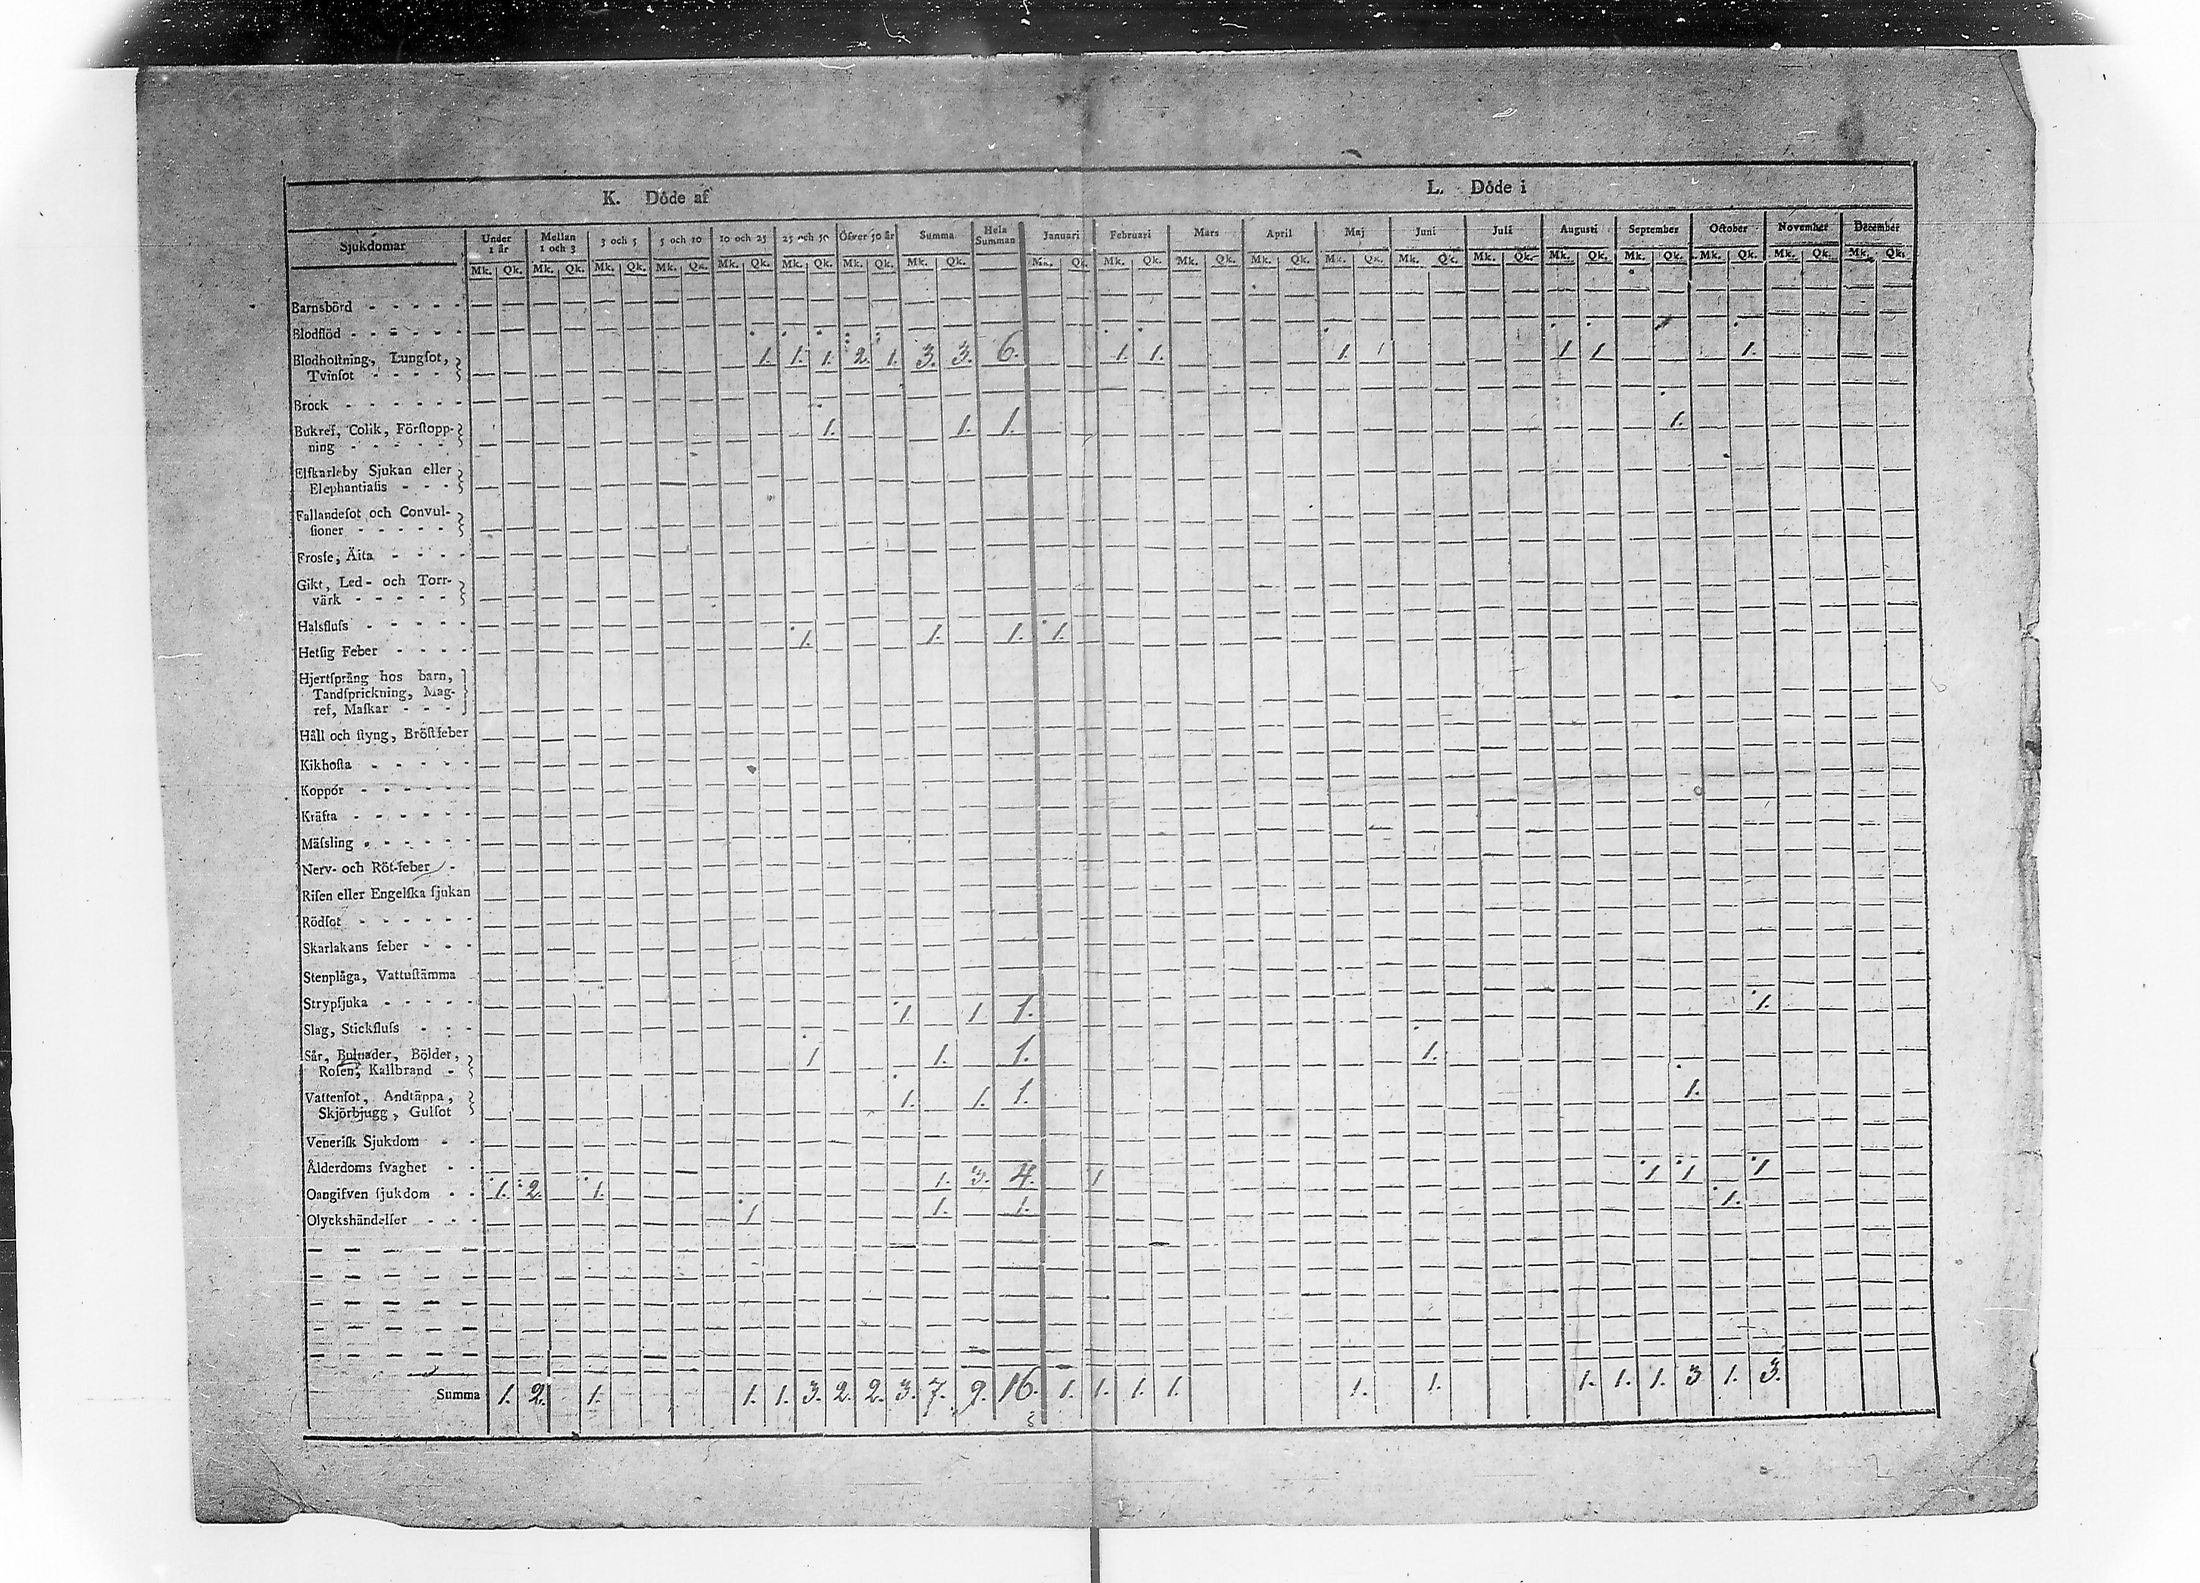 K. Döde af L. Döde i
Sjukdomar Under 1 år Mellan 1 och 3 3 och 5 5 och 10 10 och 25 25 och 50 Öfver 50 år Summa Hela Summan Januari Februari Mars April Maj Juni Juli Augusti September October November December
Mk. Qk. Mk. Qk. Mk. Qk. Mk. Qk. Mk. Qk. Mk. Qk. Mk. Qk. Mk. Qk. Mk. Qk. Mk. Qk. Mk. Qk. Mk. Qk. Mk. Qk. Mk. Qk. Mk. Qk. Mk. Qk. Mk. Qk. Mk. Qk. Mk. Qk. Mk. Qk.
Barnsbörd - - - - -
Blodflöd - - - - - -
Blodhostning, Lungsot, 1. 1. 1. 2. 1. 3. 3. 6. 1. 1. 1. 1 1 1 1.
Tvinsot - - - -
Brock - - - - - -
Bukref, Colik, Förstopp- 1. 1. 1. 1.
ning - - - - -
Elfkarleby Sjukan eller
Elephantiasis - - -
Fallandesot och Convul-
sioner - - - - -
Frosse, Älta - - - -
Gikt, Led- och Torr-
värk - - - - -
Halsfluss - - - - -
Hetsig Feber - - - - 1. 1. 1. 1.
Hjertsprång hos barn,
Tandsprickning, Mag-
ref, Maskar - - -
Håll och styng, Bröstfeber
Kikhosta - - - - -
Koppor - - - - - -
Kräfta - - - - - -
Mässling - - - - - -
Nerv- och Röt-feber -
Risen eller Engelska sjukan
Rödsot - - - - - -
Skarlakans feber - - -
Stenplåga, Vattustämma
Strypsjuka - - - - -
Slag, Stickfluss - - - 1. 1 1. 1.
Sår, Bulnader, Bölder, 1 1. 1. 1.
Rosen, Kallbrand -
Vattensot, Andtäppa, 1. 1. 1. 1.
Skjörbjugg, Gulsot
Venerisk Sjukdom - -
Ålderdoms svaghet - -
Oangifven sjukdom - - 1. 2. 1. 1. 3. 4. 1 1 1 1
Olyckshändelser - - - 1 1. 1. 1.
Summa 1. 2. 1. 1. 1. 3. 2. 2. 3. 7. 9. 16. 1. 1. 1. 1. 1. 1. 1. 1. 1. 3 1. 3.
2